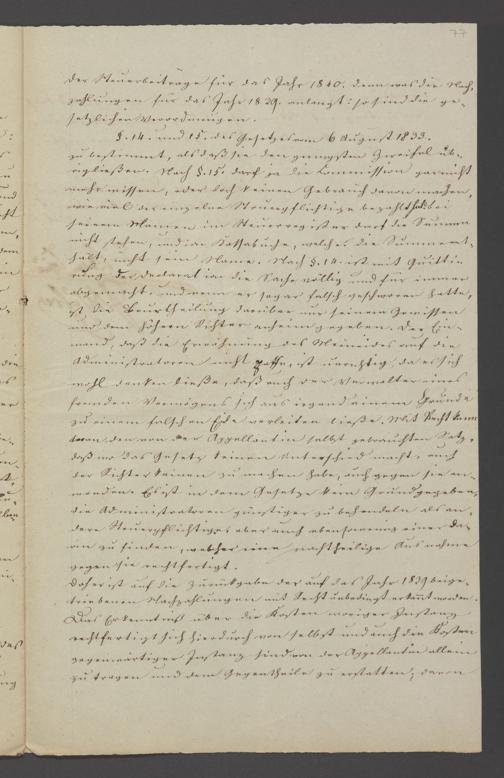 77
der Steuerbeiträge für das Jahr 1840. denn was die Nach-
zahlungen für das Jahr 1839. anlangt: so sind die ge-
setzlichen Verordnungen.
§. 14. und 15. des Gesetzes vom 6 August 1833.
zu bestimmt, als daß sie den geringsten Zweifel üb-
rigließen. Nach §. 15. darf ja die Commission gar nicht
mehr wissen, oder doch keinen Gebrauch davon machen,
wie viel der einzelne Steuerpflichtige bezahlt hat bei
seinem Namen im Steuerregister darf die Summe
nicht stehen, und im Kassabuche, welches die Summe ent-
hält, nicht sein Name. Nach §. 14. ist mit Quitti-
rung der Declaration die Sache völlig und für immer
abgemacht, und wenn er sogar falsch geschworen hätte,
ist die Beurtheilung darüber nur seinem Gewissen
und dem höhern Richter anheim gegeben. Der Ein-
wand, daß die Erwähnung des Meineides auf die
Administratoren nicht passe, ist unrichtig, da es sich
wohl denken ließe, daß auch der Verwalter eines
fremden Vermögens sich aus irgend einem Grunde
zu einem falschen Eide verleiten ließe. Mit Recht kann
man den von der Appellantin selbst gebrauchten Satz,
daß wo das Gesetz keinen Unterschied macht, auch
der Richter keinen zu machen habe, auch gegen sie an-
wenden. Es ist in dem Gesetze kein Grund gegeben,
die Administratoren günstiger zu behandeln als an-
dere Steuerpflichtige, aber auch ebensowenig einer da-
rin zu finden, welcher eine nachtheilige Ausnahme
gegen sie rechtfertigt.
Daher ist auf die Zurückgabe der auf das Jahr 1839 beige-
triebenen Nachzahlungen mit Recht unbedingt erkannt worden.
Das Erkenntniß über die Kosten voriger Instanz
rechtfertigt sich hierdurch von selbst und auch die Kosten
gegenwärtiger Instanz sind von der Appellantin allein
zu tragen und dem Gegentheile zu erstatten, da von